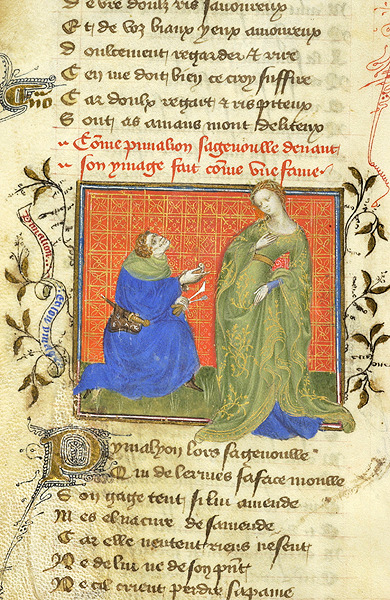 De vre doulz ris savoureux
Et de voz biaux yeux amoureux
Doulcement regarder & rire
Cen me doit bien ce croy suffire
Car doulx regart & ris piteux
Sont as amans mont deliteux
Come pimalion sagenoulle devant
son ymage fait come une fame
Pymalyon lors sagenoulle
Qui de lermes sa face moulle
Son gage tent si lui amende
Mes el na cure de samende
Car elle nentent riens ne sent
Ne de lui ne de son pnt
Ne cil crient perdre sa paine